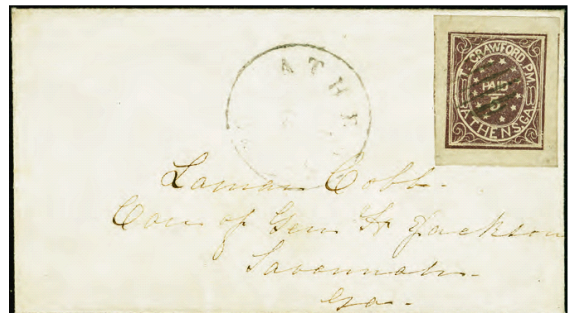 T. CRAWFORD, P.M.
PAID
5
ATHENS, GA.
ATHE
Lamar Cobb.
Care of Gen H Jackson
Savannah.
Ga.